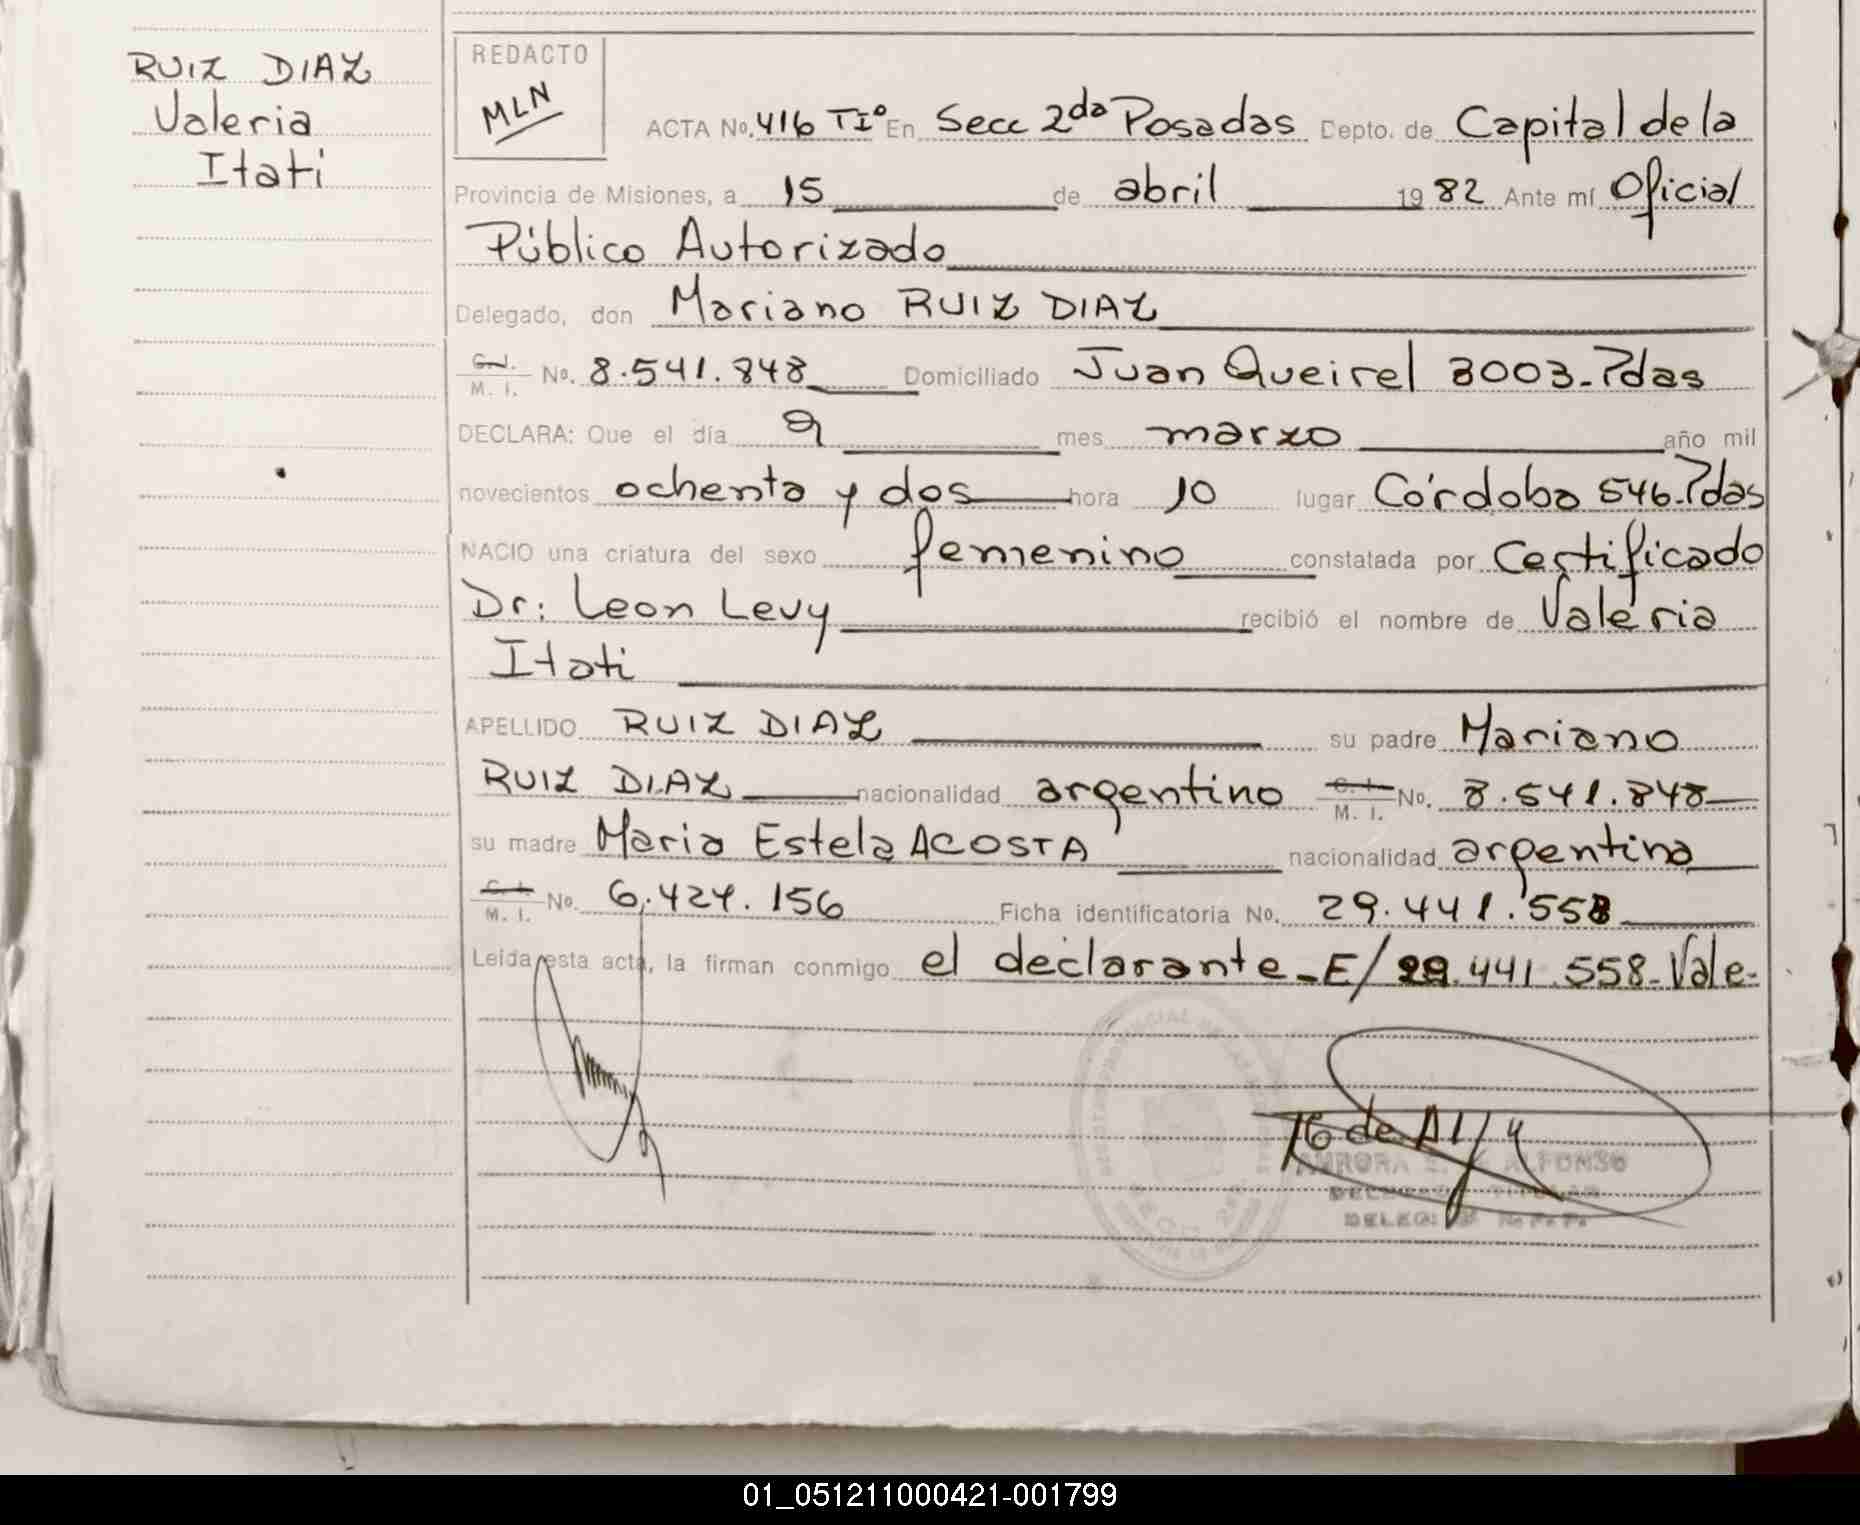 RUIZ DIAZ
Valeria
Itati
REDACTO
MLN
ACTA No. 416 TIº En Secc 2da Posadas Depto. de Capital de la
Provincia de Misiones, a 15 de abril 1982 Ante mí Oficial
Público Autorizado
Delegado, don Mariano RUIZ DIAZ
C.I. M. I. No. 8.541.848 Domiciliado Juan Queirel 3003-Pdas
DECLARA: Que el día 9 mes marzo año mil
novecientos ochenta y dos hora 10 lugar Córdoba 546-Pdas
NACIO una criatura del sexo femenino constatada por Certificado
Dr: Leon Levy recibió el nombre de Valeria
Itati
APELLIDO RUIZ DIAZ su padre Mariano
RUIZ DIAZ nacionalidad argentino C. I. M. I. No. 8.541.848
su madre Maria Estela ACOSTA nacionalidad argentina
C. I. M. I. No. 6.424.156 Ficha identificatoria No. 29.441.558
Leida esta acta, la firman conmigo el declarante-E/29.441.558-Vale-
ALFONSO
TITULAR
01_051211000421-001799